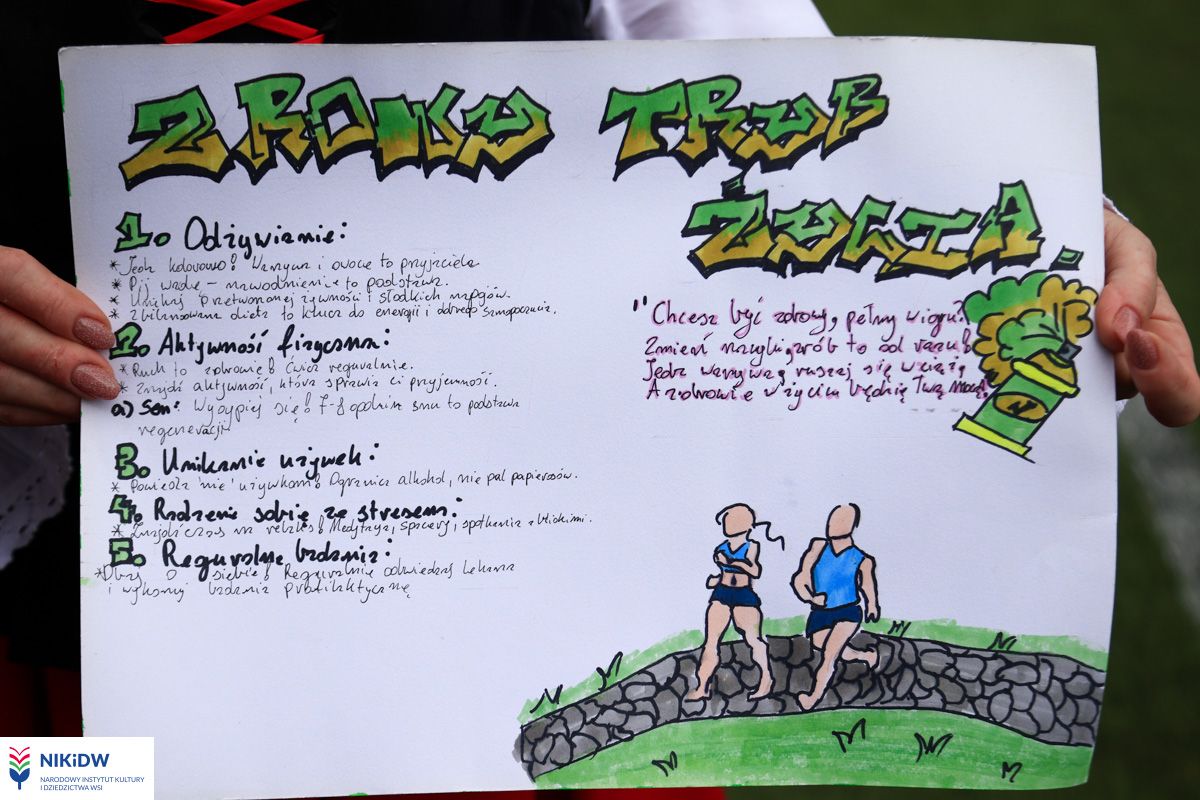 ZROWY TRYB
ŻYCIA
1. Odżywianie:
* Jedz kolorowo! Warzywa i owoce to przyjaciele
* Pij wodę - nawodnienie to podstawa.
* Unikaj przetworzonej żywności i słodkich napojów.
* Zbilansowana dieta to klucz do energii i dobrego samopoczucia.
2. Aktywność fizyczna:
* Ruch to zdrowie! Ćwicz regularnie.
* Znajdź aktywność, która sprawia ci przyjemność.
a) Sen: Wysypiaj się! 7-8 godzin snu to podstawa
regeneracji
3. Unikanie używek:
* Powiedz "nie" używkom! Ogranicz alkohol, nie pal papierosów.
4. Radzenie sobie ze stresem:
* Znajdź czas na relaks! Medytacja, spacery, spotkania z bliskimi.
5. Regularne badania:
* Dbaj o siebie! Regularnie odwiedzaj lekarza
i wykonuj badania profilaktyczne
"Chcesz być zdrowy, pełny wigoru?
Zmień nawyki, zrób to od razu!
Jedz warzywa, ruszaj się w ciąż
A zdrowie w życiu będzie Twą mocą!
NIKiDW
NARODOWY INSTYTUT KULTURY
I DZIEDZICTWA WSI